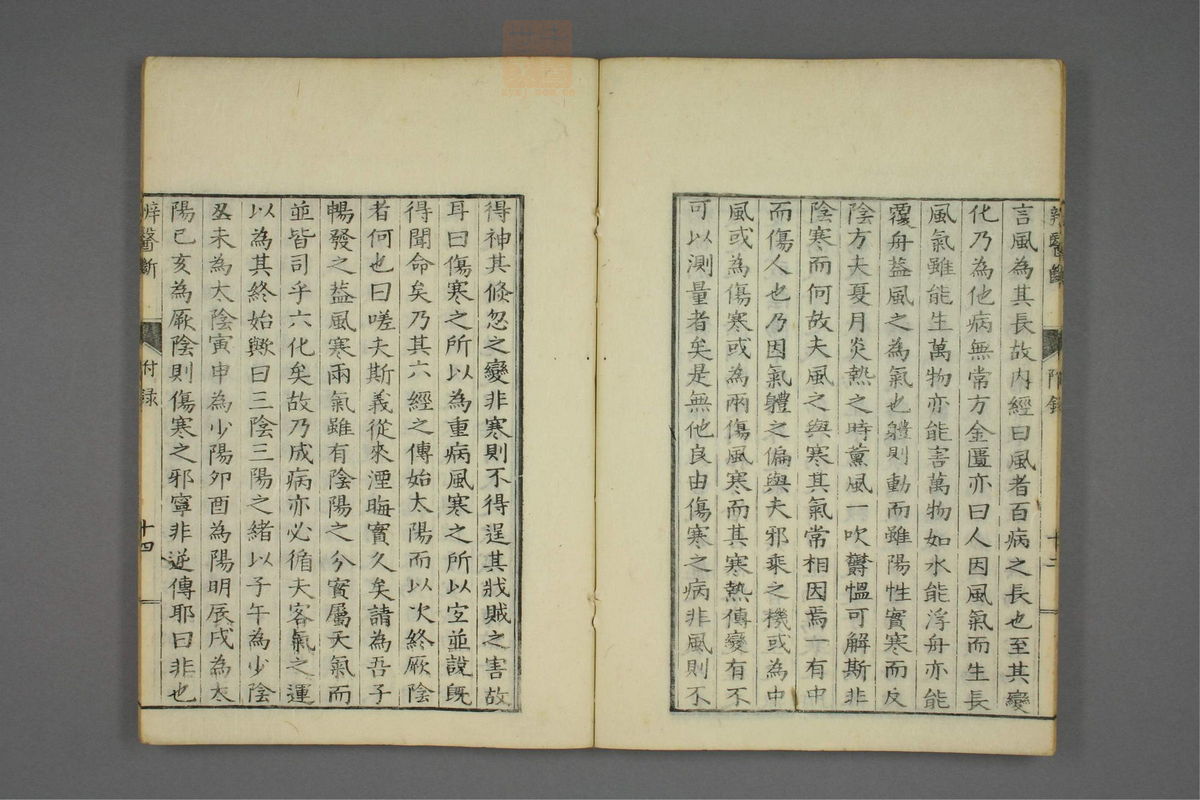 言風為其長故内經曰風者百病之長也至其變
化乃為他病無常方金匱亦曰人因風氣而生長
風氣雖能生萬物亦能害萬物如水能浮舟亦能
覆舟蓋風之為氣也軆則動而雖陽性實寒而反
陰方夫夏月炎熱之時薰風一吹欝愠可解斯非
陰寒而何故夫風之與寒其氣常相因焉一有中
而傷人也乃因氣軆之偏與夫邪乘之機或為中
風或為傷寒或為兩傷風寒而其寒熱傳變有不
可以測量者矣是無他良由傷寒之病非風則不
得神其倏忽之變非寒則不得逞其戕賊之害故
耳曰傷寒之所以為重病風寒之所以宜並說既
得聞命矣乃其六經之傳始太陽而以次終厥陰
者何也曰嗟夫斯義從來湮晦實久矣請為吾子
暢發之蓋風寒兩氣雖有陰陽之分實屬天氣而
並皆司乎六化矣故乃成病亦必循夫客氣之運
以為其終始歟曰三陰三陽之緒以子午為少陰
丑未為太陰寅申為少陽卯酉為陽明辰戌為太
陽已亥為厥陰則傷寒之邪寧非逆傳耶曰非也
辨醫斷 附録 十四